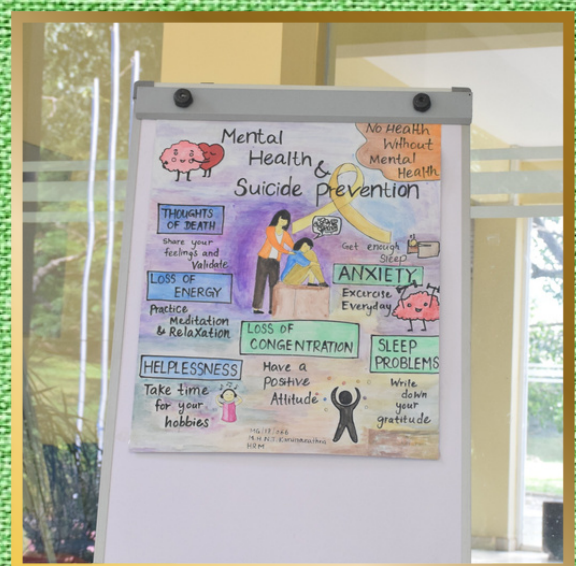 Mental
Health &
Suicide prevention
No Health
Without
Mental
Health
THOUGHTS
OF DEATH
Share your
feelings and
Validate
Get enough
Sleep
LOSS OF
ENERGY
Practice
Meditation
& Relaxation
ANXIETY
Excercise
Everyday
LOSS OF
CONGENTRATION
Have a
Positive
Attitude
SLEEP
PROBLEMS
Write
down
your
gratitude
HELPLESSNESS
Take time
for your
hobbies